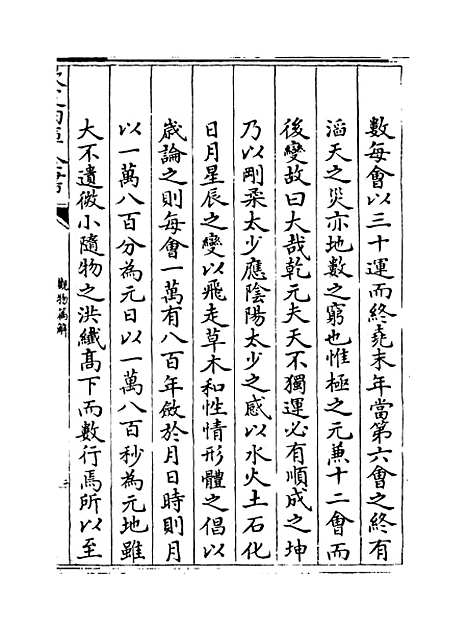 數每會以三十運而終堯末年當第六會之終有
滔天之災亦地數之窮也惟極之元兼十二會而
後變故曰大哉乾元夫天不獨運必有順成之坤
乃以剛柔太少應陰陽太少之感以水火土石化
日月星辰之變以飛走草木和性情形體之倡以
歲論之則每會一萬有八百年敓於月日時則月
以一萬八百分為元日以一萬八百秒為元地雖
大不遺微小隨物之洪纖高下而數行焉所以至
欽定四庫全書
觀物篇解